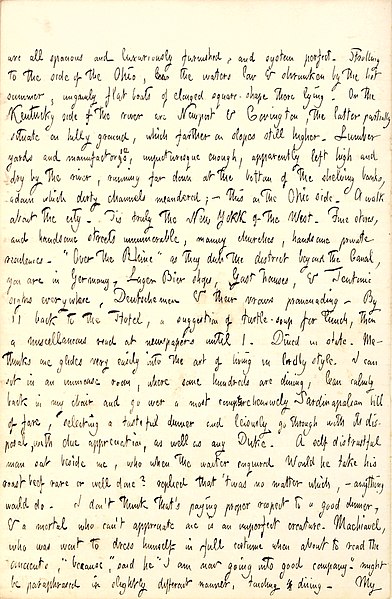 are all spacious and luxuriously furnished, and system perfect. Strolling
to the side of the Ohio, the waters low & shrunken by the hot
summer, ungainly flat boats of clumsy square shape there lying. On the
Kentucky side of the river are Newport & Covington, the latter partially
situate on hilly ground, which farther on slopes still higher. Lumber
yards and manufactories, unpicturesque enough, apparently left high and
dry by the river, running far down at the bottom of the shelving banks,
adown which dirty channels meandered; — this on the Ohio side. A walk
about the city. 'Tis truly the New York of the West. Fine stores,
and handsome streets innumerable, many churches, handsome private
residences. "Over the Rhine" as they dub the district beyond the Canal,
you are in Germany. Lager Bier shops, Gast houses, & Teutonic
signs everywhere, Deutschemen & their vrows promenading. By
11 back to the Hotel, a suggestion of turtle-soup for lunch, then
a miscellaneous read at newspapers until 1. Dined in state. Me-
thinks one glides very easily into the art of living in lordly style. I can
sit in an immense room, where some hundreds are dining, lean calmly
back in my chair and go over a most comprehensively Sardinapalean bill
of fare, selecting a tasteful dinner and leisurely go through with its dis-
posal, with due appreciation, as well as any Duke. A self distrustful
man sat beside me, who when the waiter enquired Would he take his
roast beef rare or well done? replied that 'twas no matter which, — anything
would do. I don't think that's paying proper respect to a good dinner,
& a mortal who can't appreciate one is an imperfect creature. Machiavel,
who was went to dress himself in full costume when about to read the
ancients, "because," said he "I am now going into good company" might
be paraphrased in slightly different manner, touching dining. My